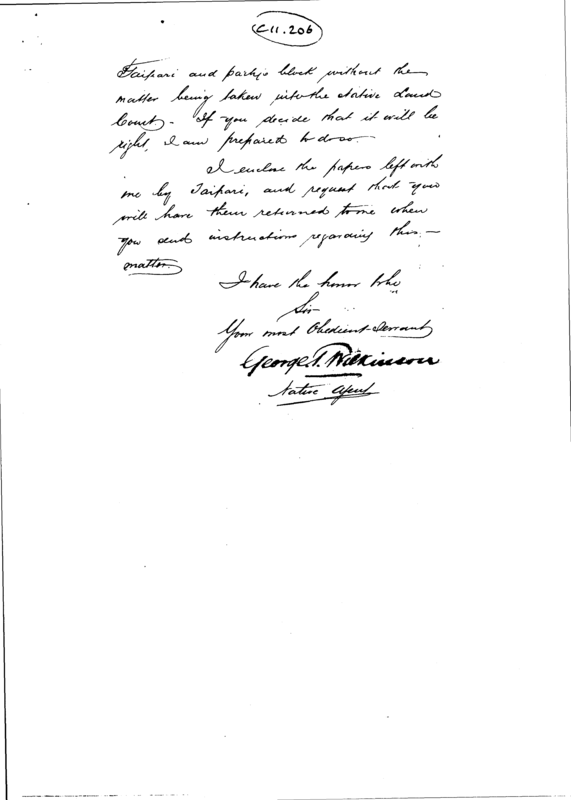 C11.206
Taipari and party's block without the
matter being taken into the Native Land
Court. If you decide that it will be
right, I am prepared to do so.
I enclose the papers left with
me by Taipari, and request that you
will have them returned to me when
you send instructions regarding this
matter
I have the honor to be
Sir
Your most Obedient Servant
George T. Wilkinson
Native Agent